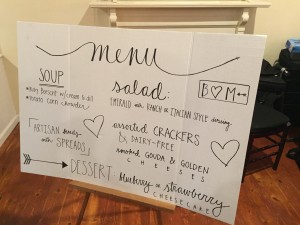 menu
SOUP
• Beet Borscht w/cream & dill
• Potato Corn chowder
salad:
EMERALD with RANCH or ITALIAN STYLE dressing
B ♡ M
ARTISAN
with SPREADS
assorted CRACKERS
& DAIRY-FREE
smoked GOUDA & GOLDEN
CHEESES
DESSERT: blueberry or strawberry
CHEESECAKE